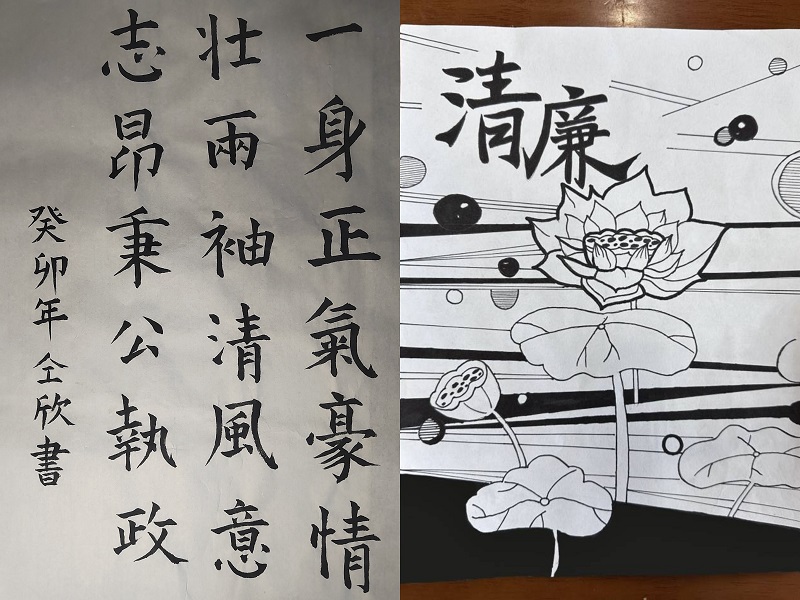 一身正氣豪情
壯兩袖清風意
志昂秉公執政
癸卯年仝欣書
清廉